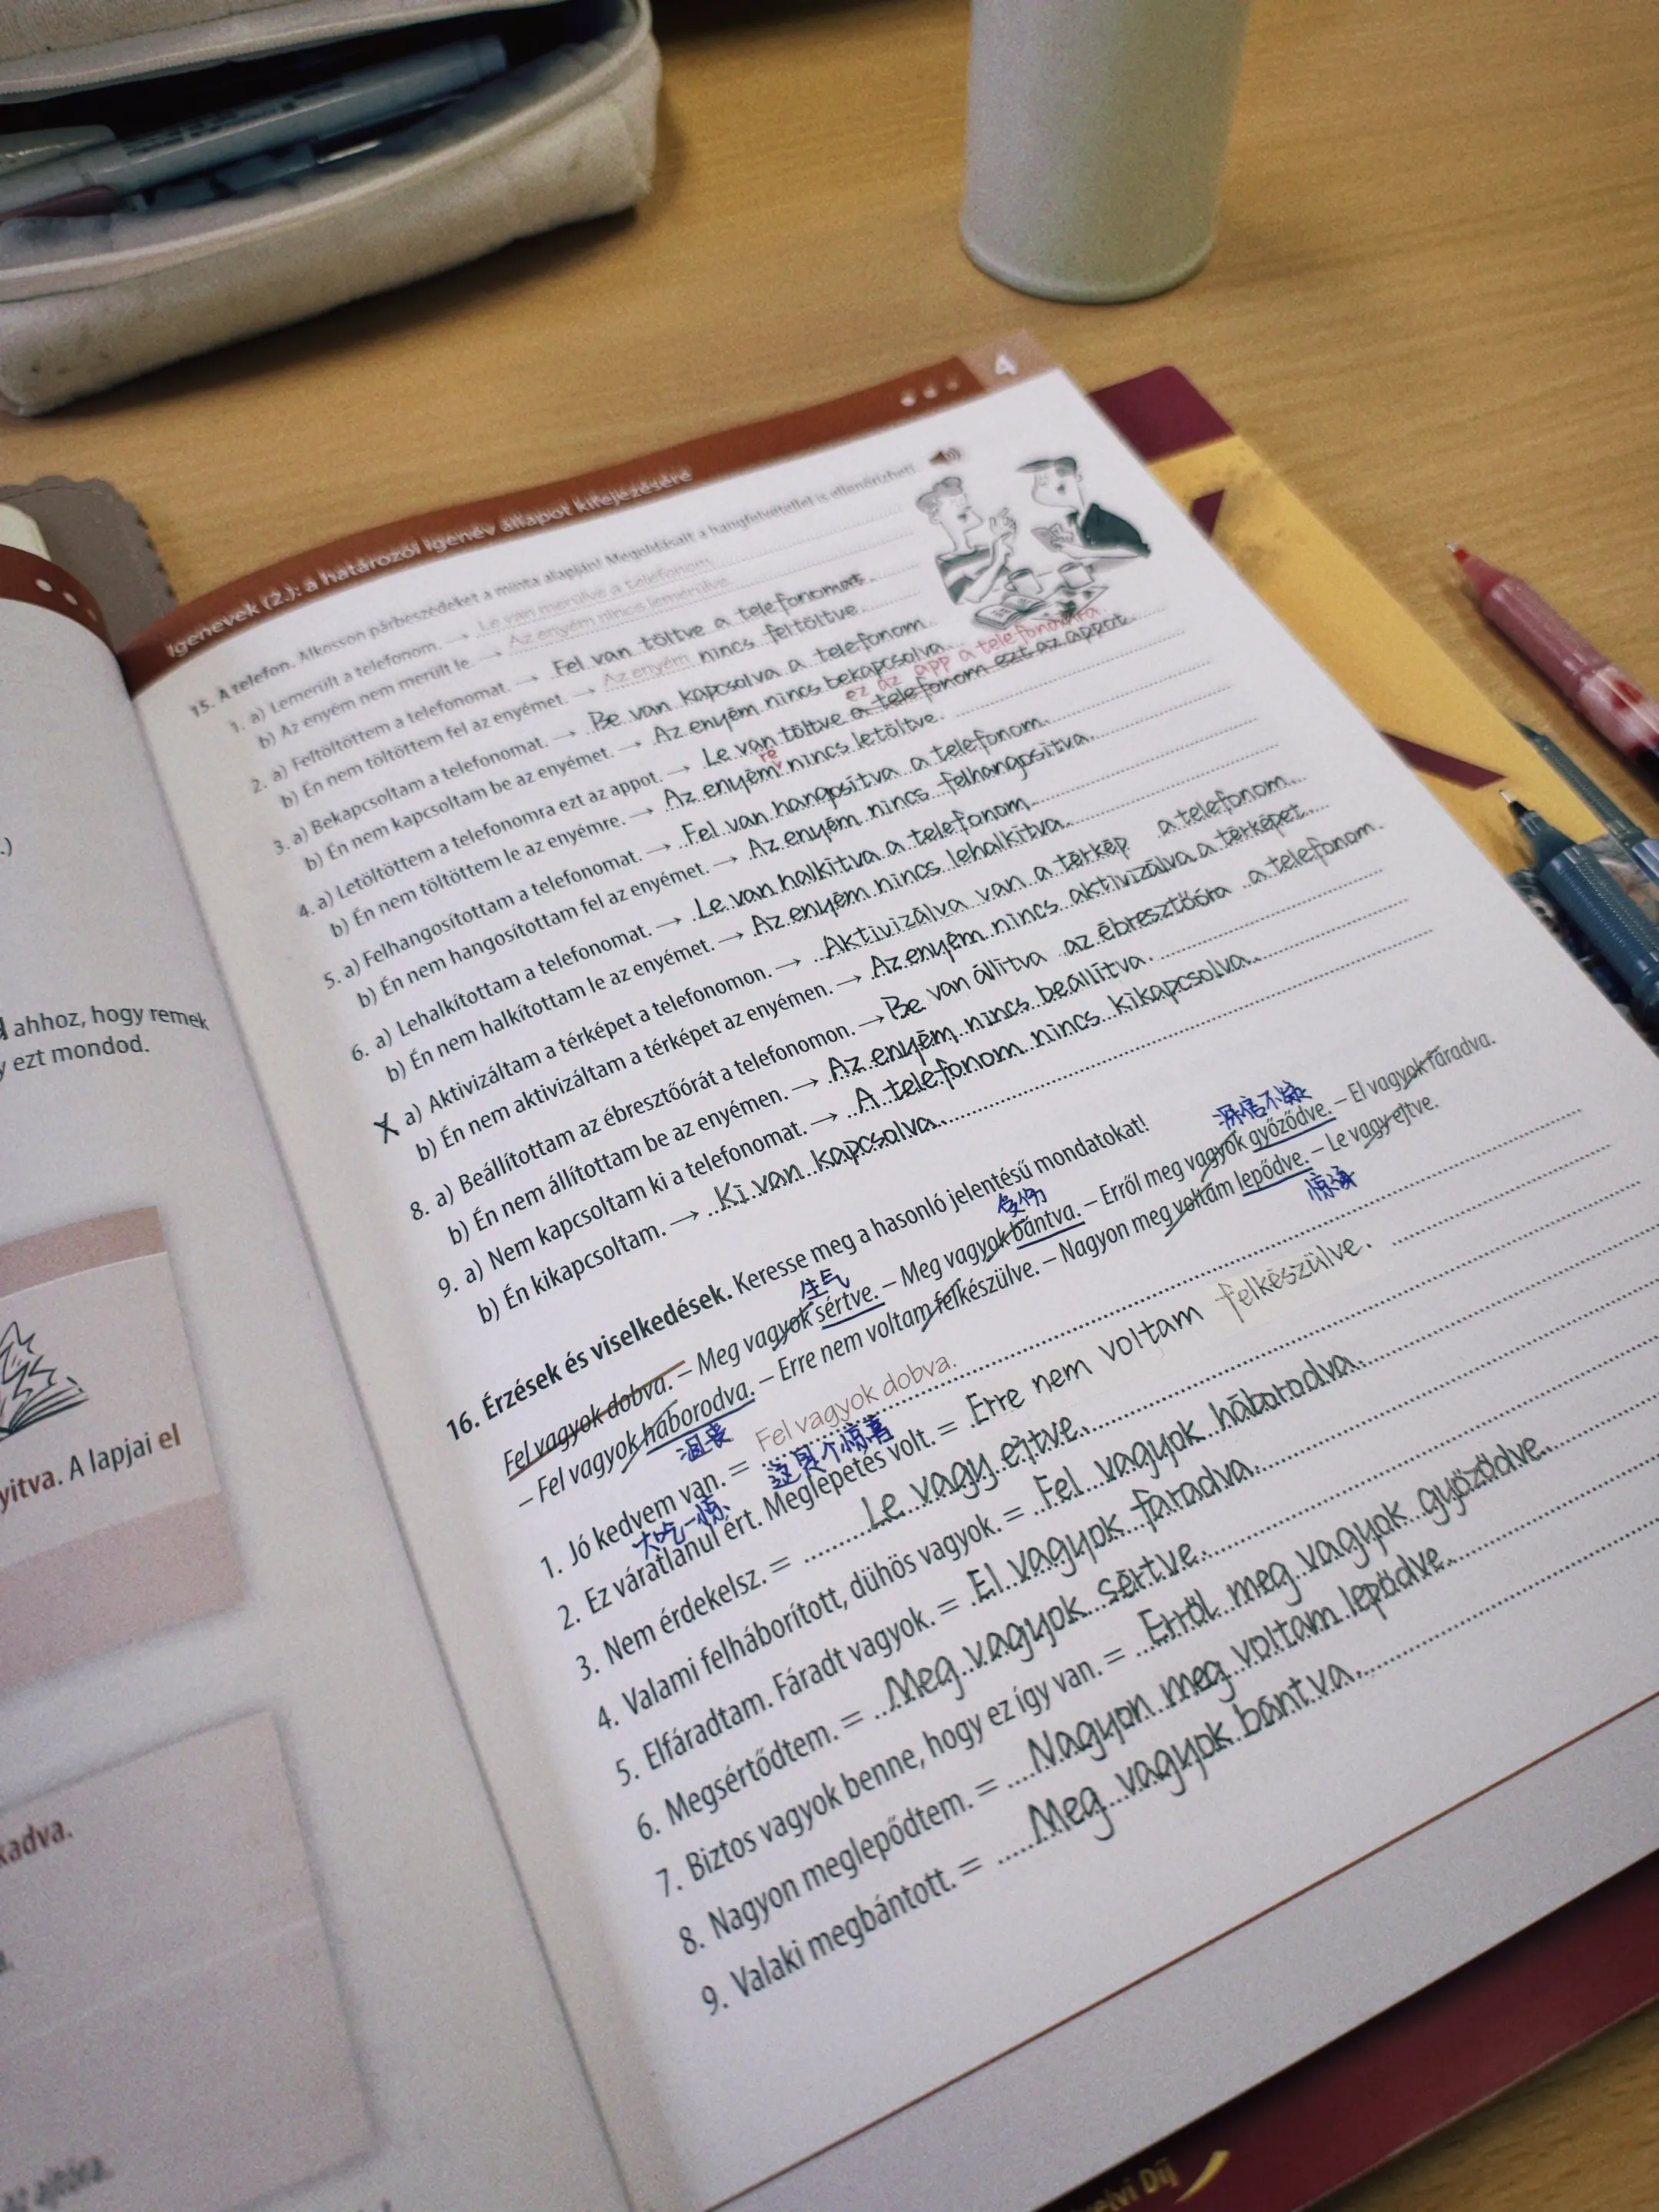 4
Igenevek (2.): a határozói igenév állapot kifejezésére
15. A telefon. Alkosson párbeszédeket a minta alapján! Megoldásait a hangfelvétellel is ellenőrizheti.
1. a) Lemerült a telefonom. → Le van merülve a telefonom.
b) Az enyém nem merült le. → Az enyém nincs lemerülve.
2. a) Feltöltöttem a telefonomat. → Fel van töltve a telefonomat.
b) Én nem töltöttem fel az enyémet. → Az enyém nincs feltöltve.
3. a) Bekapcsoltam a telefonomat. → Be van kapcsolva a telefonom.
b) Én nem kapcsoltam be az enyémet. → Az enyém nincs bekapcsolva.
ez az app a telefonomra
4. a) Letöltöttem a telefonomra ezt az appot. → Le van töltve a telefonom ezt az appot.
re
b) Én nem töltöttem le az enyémre. → Az enyém nincs letöltve.
5. a) Felhangosítottam a telefonomat. → Fel van hangosítva a telefonom.
b) Én nem hangosítottam fel az enyémet. → Az enyém nincs felhangosítva.
6. a) Lehalkítottam a telefonomat. → Le van halkítva a telefonom.
b) Én nem halkítottam le az enyémet. → Az enyém nincs lehalkítva.
a) Aktivizáltam a térképet a telefonomon. → Aktivizálva van a térkép a telefonom.
b) Én nem aktivizáltam a térképet az enyémen. → Az enyém nincs aktivizálva a térképet.
8. a) Beállítottam az ébresztőórát a telefonomon. → Be van állítva az ébresztőóra a telefonom.
b) Én nem állítottam be az enyémen. → Az enyém nincs beállítva.
9. a) Nem kapcsoltam ki a telefonomat. → A telefonom nincs kikapcsolva.
b) Én kikapcsoltam. → Ki van kapcsolva.
16. Érzések és viselkedések. Keresse meg a hasonló jelentésű mondatokat!
生气 受伤 深信不疑
Fel vagyok dobva. – Meg vagyok sértve. – Meg vagyok bántva. – Erről meg vagyok győződve. – El vagyok fáradva.
– Fel vagyok háborodva. – Erre nem voltam felkészülve. – Nagyon meg voltam lepődve. – Le vagy ejtve.
沮丧 惊讶
1. Jó kedvem van. = Fel vagyok dobva.
大吃一惊 这是个惊喜
2. Ez váratlanul ért. Meglepetés volt. = Erre nem voltam felkészülve.
3. Nem érdekelsz. = Le vagy ejtve.
4. Valami felháborított, dühös vagyok. = Fel vagyok háborodva.
5. Elfáradtam. Fáradt vagyok. = El vagyok faradva.
6. Megsértődtem. = Meg vagyok sértve.
7. Biztos vagyok benne, hogy ez így van. = Erről meg vagyok győződve.
8. Nagyon meglepődtem. = Nagyon meg voltam lepődve.
9. Valaki megbántott. = Meg vagyok bántva.
ahhoz, hogy remek
ezt mondod.
yitva. A lapjai el
kadva.
Díj